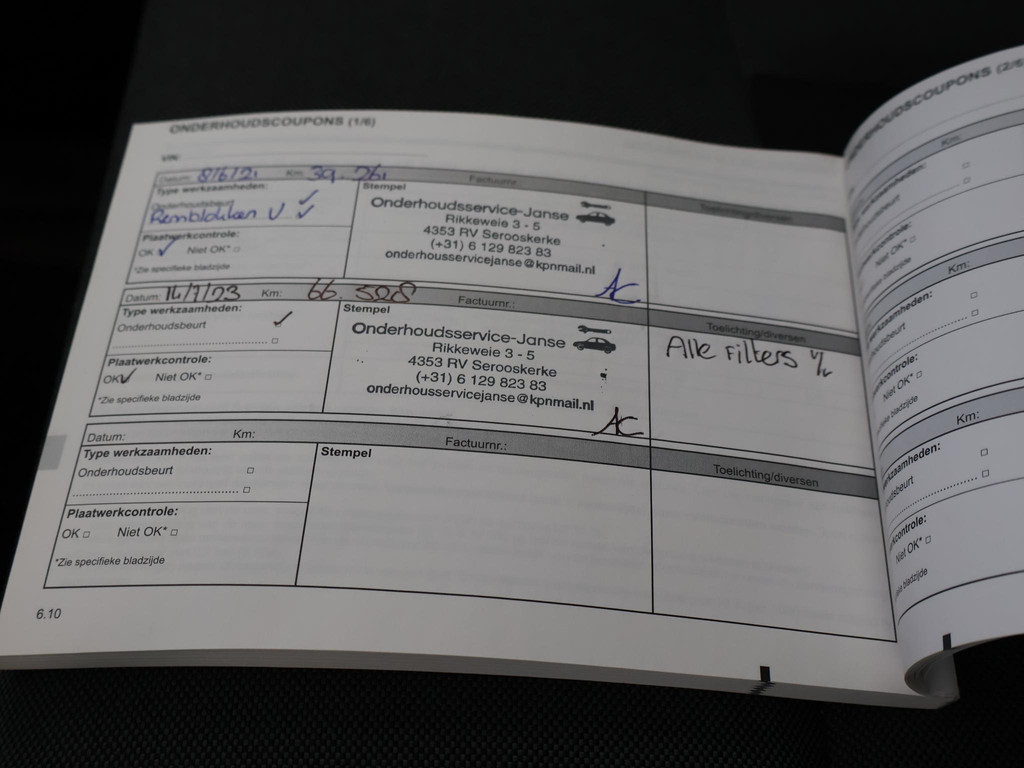 ONDERHOUDSCOUPONS (1/6)
VIN:
Datum: 8/6/21 Km: 39.261 Factuurnr.:
Type werkzaamheden:
Onderhoudsbeurt
Remblokken V
Plaatwerkcontrole:
OK Niet OK*
*Zie specifieke bladzijde
Stempel
Onderhoudsservice-Janse
Rikkeweie 3 - 5
4353 RV Serooskerke
(+31) 6 129 823 83
onderhousservicejanse@kpnmail.nl
AC
Toelichting/diversen
Datum: 14/7/23 Km: 66.508 Factuurnr.:
Type werkzaamheden:
Onderhoudsbeurt
Plaatwerkcontrole:
OK Niet OK*
*Zie specifieke bladzijde
Stempel
Onderhoudsservice-Janse
Rikkeweie 3 - 5
4353 RV Serooskerke
(+31) 6 129 823 83
onderhousservicejanse@kpnmail.nl
AC
Toelichting/diversen
Alle Filters
Datum: Km: Factuurnr.:
Type werkzaamheden:
Onderhoudsbeurt
Plaatwerkcontrole:
OK Niet OK*
*Zie specifieke bladzijde
Stempel
Toelichting/diversen
6.10
Km:
Niet OK*
Km:
Niet OK*
bladzijde
Km:
Niet OK*
bladzijde